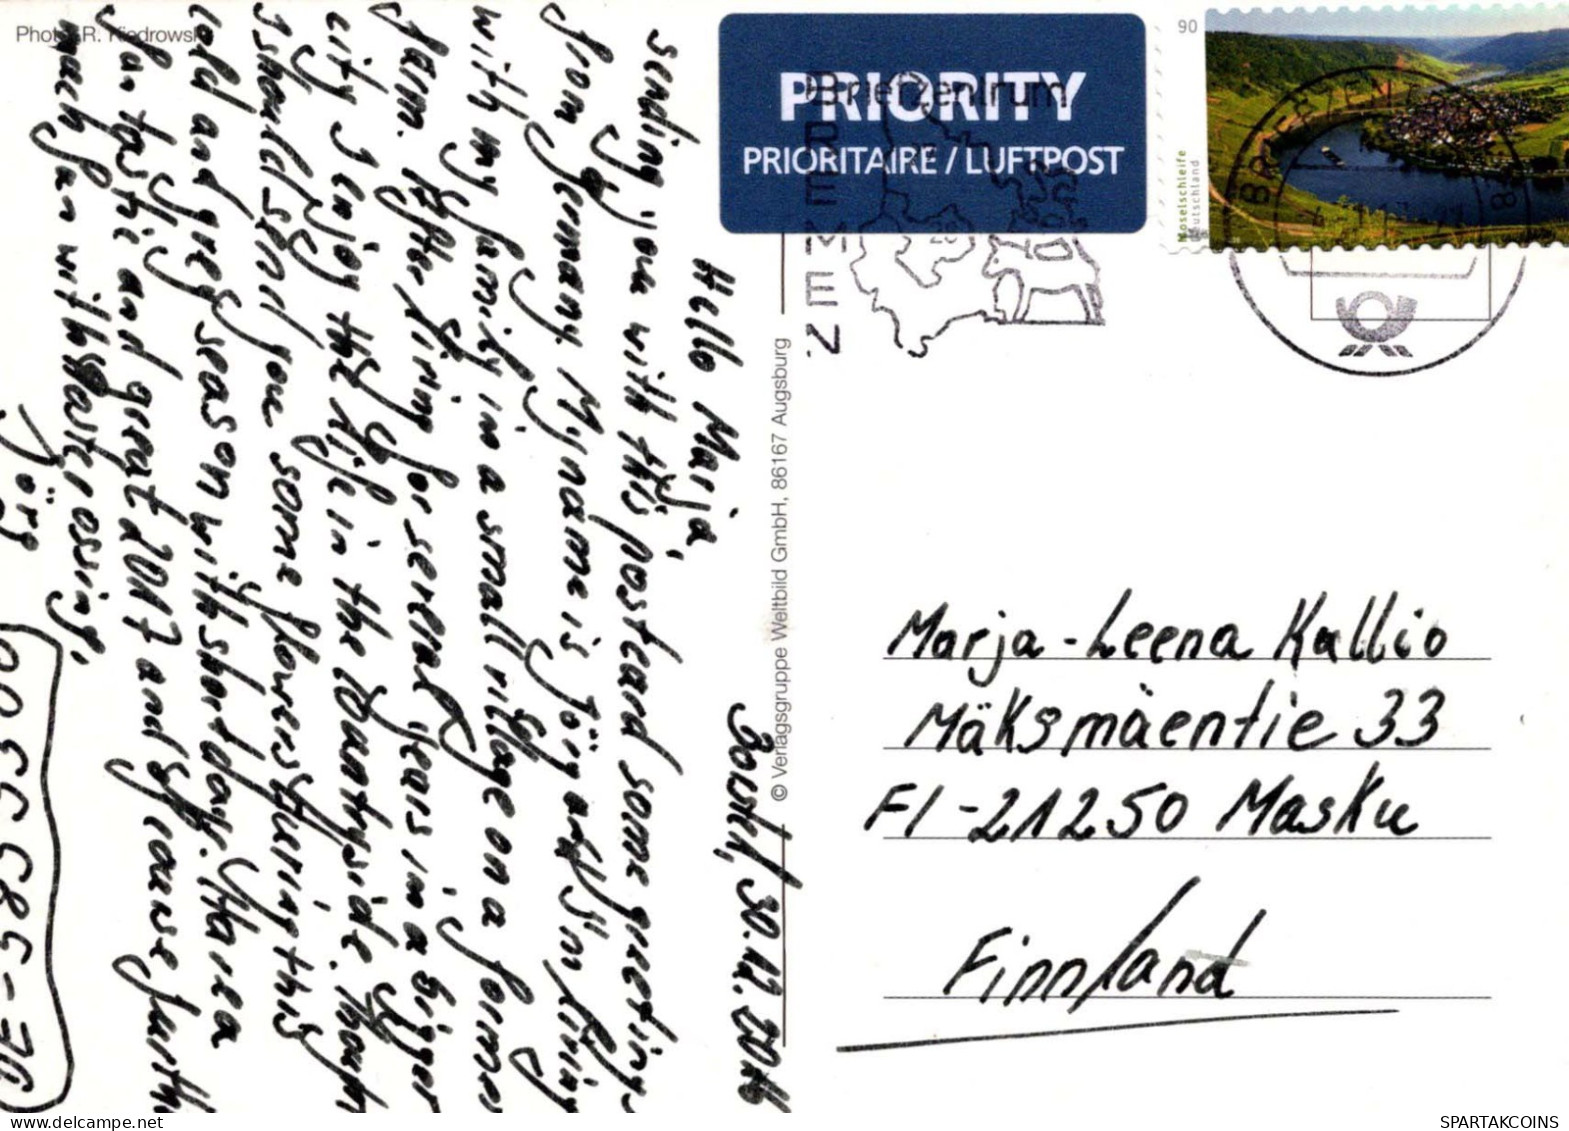 Photo: R. Kiedrowski
PRIORITY
PRIORITAIRE / LUFTPOST
Briefzentrum
28
90
Moselschleife
Deutschland
BRIEFZENTRUM
© Verlagsgruppe Weltbild GmbH, 86167 Augsburg
30.12.2016
Hello Marja,
sending you with this postcard some greeting
from Germany. My name is Jörg and I'm living
with my family in a small village on a former
farm. After living for several years in a bigger
city I enjoy the life in the countryside. Though
I should send you some flowers during this
cold and grey season with short days. Have a
fantastic and great 2017 and of course further
much fun with postcrossing,
Jörg
Marja-Leena Kallio
Mäksmäentie 33
FI-21250 Masku
Finnland
SPARTAKCOINS